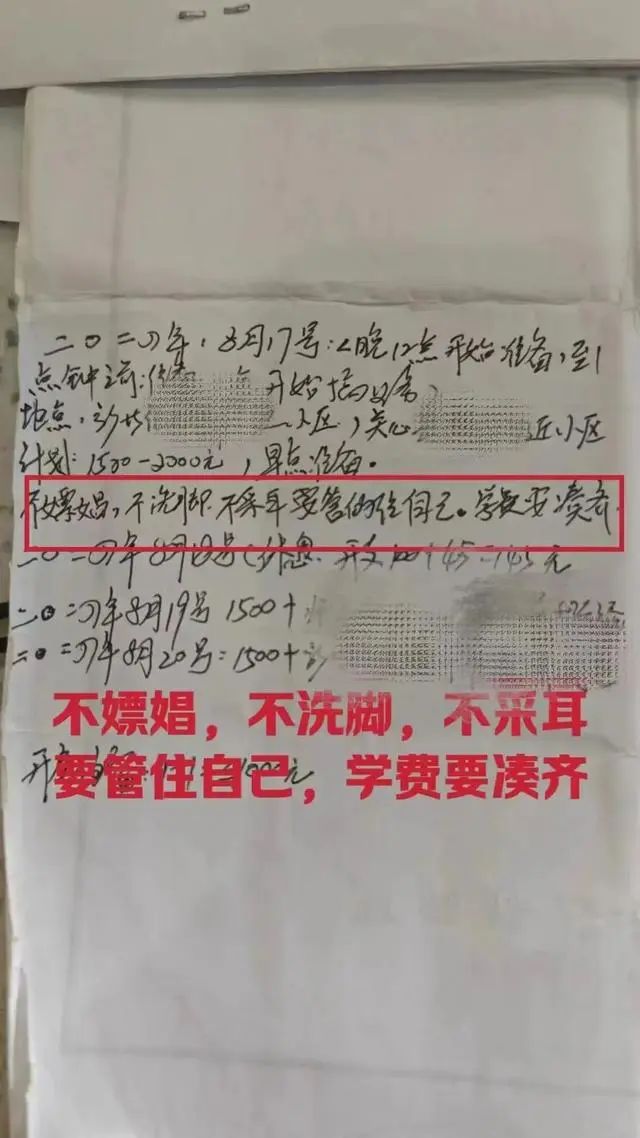 二〇二四年，8月17号：2晚12点开始准备，至1
点钟之前 开始搞
地点， 小区，关心 近小区
计划：1500-2000元，早点准备。
不嫖娼，不洗脚 不采耳 要管住自己。学费要凑齐
二〇二四年8月18号（休息 开支100+45=145元
二〇二四年8月19号 1500+
二〇二四年8月20号：1500+
不嫖娼，不洗脚，不采耳
要管住自己，学费要凑齐